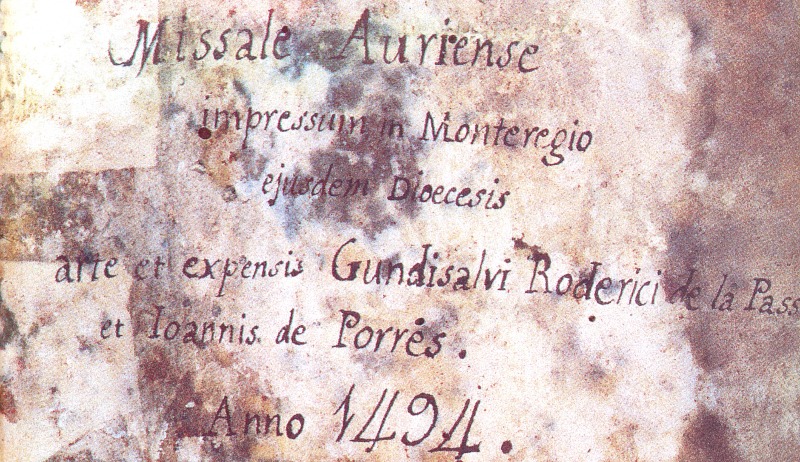 Missale Auriense
impressum in Monteregio
ejusdem Dioecesis
arte et expensis Gundisalvi Roderici de la Pass
et Ioannis de Porrés.
Anno 1494.